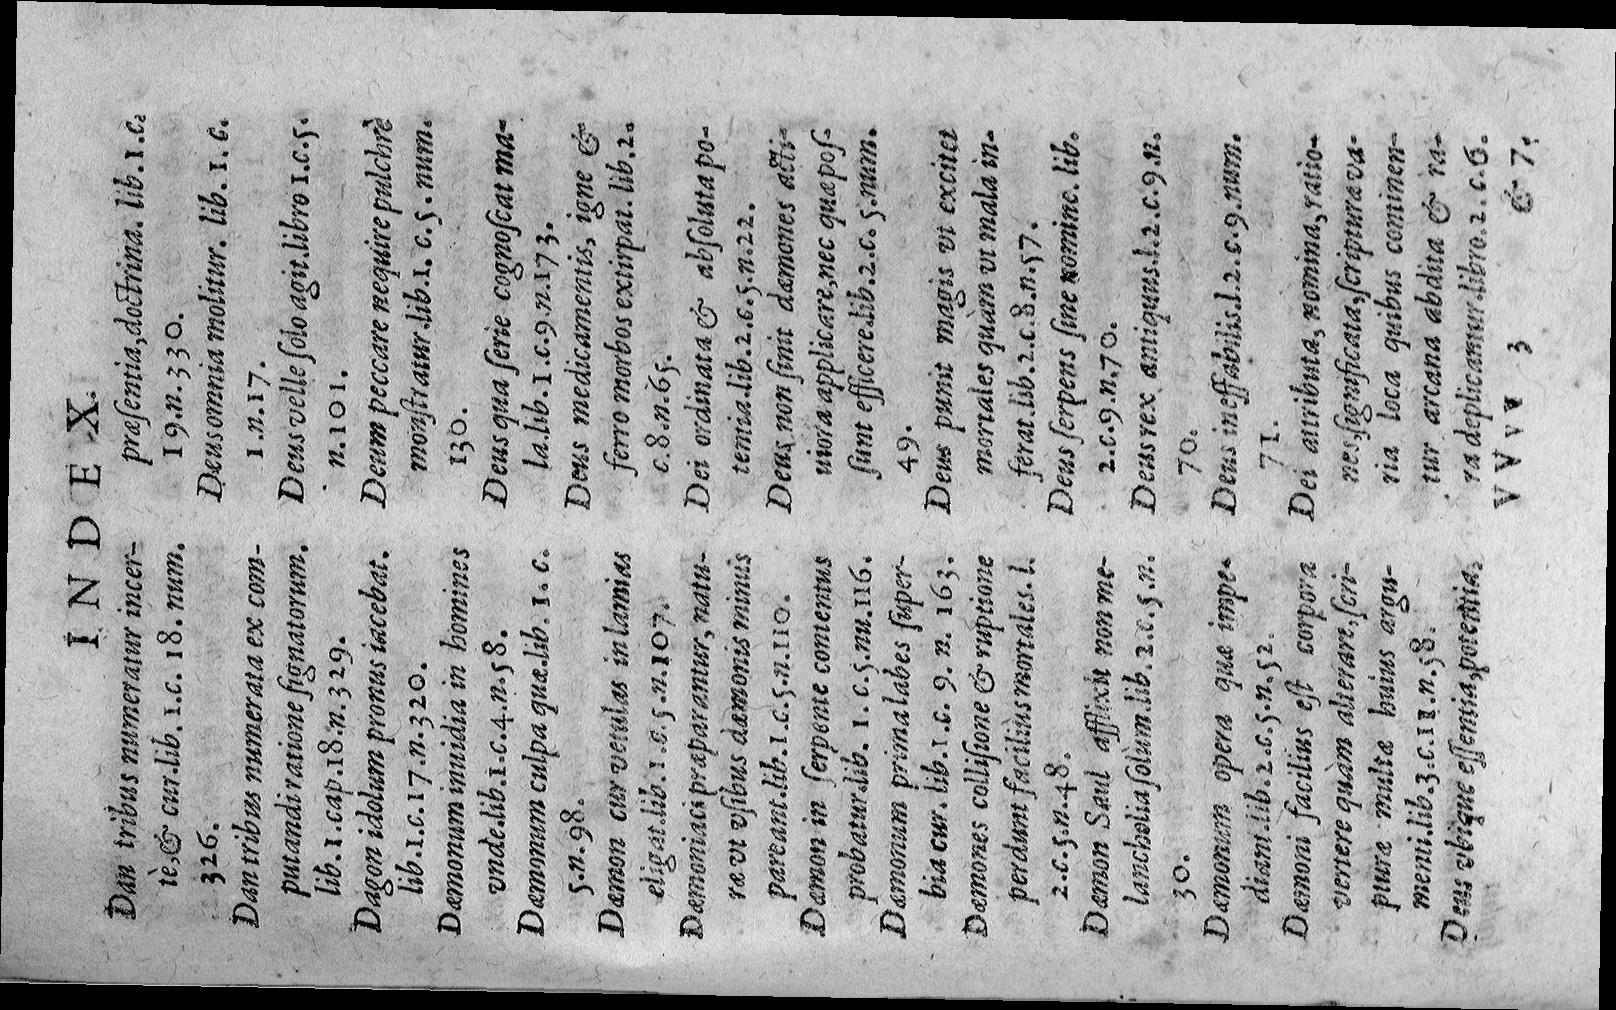 INDEX.
Dan tribus numeratur incer-
tè,& cur.lib.1.c. 18. num.
326.
Dan tribus numerata ex com-
putandi ratione ſignatorum.
lib.1.cap.18.n.329.
Dagon idolum pronus iacebat.
lib.1.c.17.n.320.
Dæmonum inuidia in homines
vnde.lib.1.c.4.n.58.
Dæmonum culpa quæ.lib.1.c.
5.n.98.
Dæmon cur vetulas in lamias
eligat.lib.1.c.5.n.107.
Dæmoniaci præparantur, natu-
ræ vt vſibus dæmonis minus
pareant.lib.1.c.5.n.110.
Dæmon in ſerpente contentus
probatur.lib. 1.c.5.nu.116.
Dæmonum prima labes ſuper-
bia cur.lib.1.c. 9. n. 163.
Dæmones colliſione & ruptione
perdunt faciliùs mortales.l.
2.c.5.n.48.
Dæmon Saul afflixit non me-
lancholia ſolùm.lib.2.c.5.n.
30.
Dæmonum opera quæ impe-
diant.lib.2.c.5.n.52.
Dæmoni facilius eſt corpora
vertere quàm alterare,ſcri-
pturæ multæ huius argu-
menti.lib.3.c.11.n.58.
Deus vbique eſſentia,potentia,
præſentia,doctrina. lib.1.c.
19.n.330.
Deus omnia molitur. lib.1.c.
1.n.17.
Deus velle ſolo agit.libro 1.c.5.
n.101.
Deum peccare nequire pulchrè
monſtratur.lib.1.c.5.num.
130.
Deus qua ſerie cognoſcat ma-
la.lib.1.c.9.n.173.
Deus medicamentis, igne &
ferro morbos extirpat.lib.2.
c.8.n.65.
Dei ordinata & abſoluta po-
tentia.lib.2.c.5.n.22.
Deus non ſinit dæmones acti-
uiora applicare,nec quæ poſ-
ſunt efficere.lib.2.c.5.num.
49.
Deus punit magis vt excitet
mortales quàm vt mala in-
ferat.lib.2.c.8.n.57.
Deus ſerpens ſine nomine. lib.
2.c.9.n.70.
Deus rex antiquus.l.2.c.9.n.
70.
Deus ineffabilis.l.2.c.9.num.
71.
Dei attributa, nomina,ratio-
nes,ſignificata,ſcripturæ va-
ria loca quibus continen-
tur arcana abdita & ra-
ra deplicantur.libro.2.c.6.
VVvv 3 & 7.